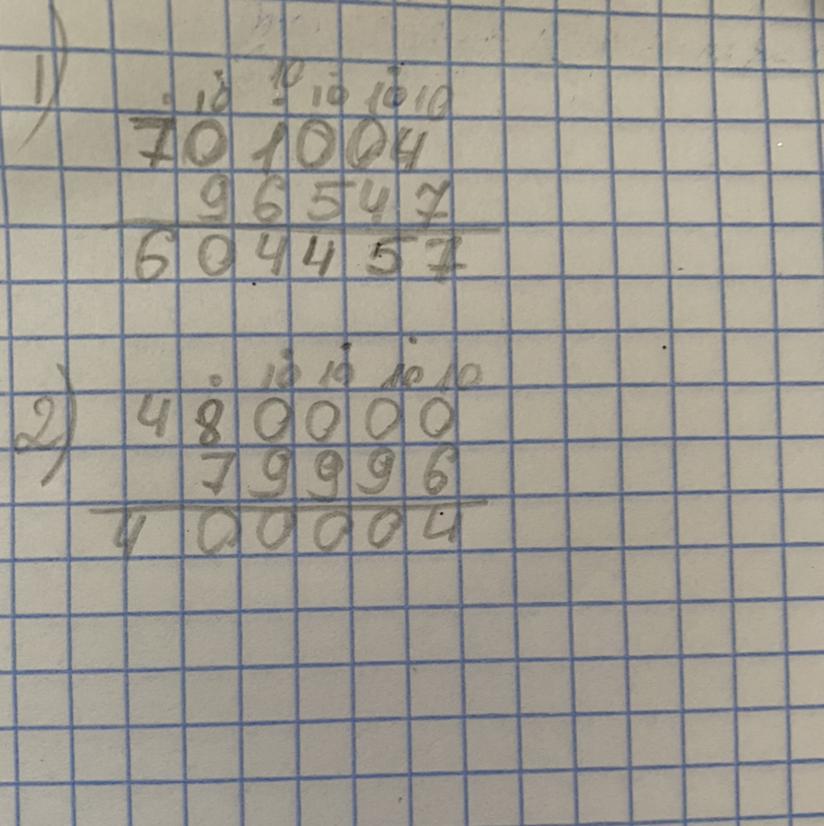 1)
10 10 10 10 10
701004
96547
604457
2)
10 10 10 10
480000
79996
400004